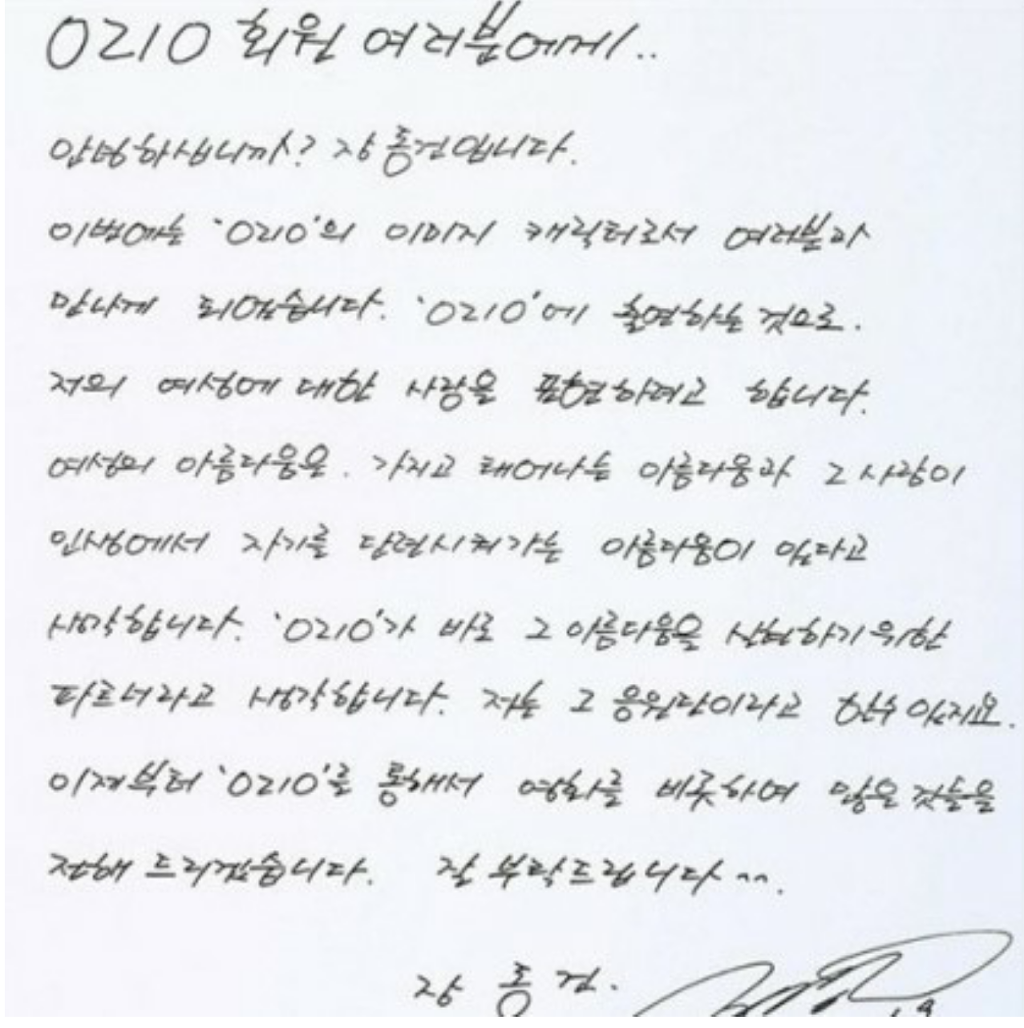 0210 회원 여러분에게..
안녕하십니까? 장동건입니다.
이번에는 '0210'의 이미지 캐릭터로서 여러분과
만나게 되었습니다. '0210'에 출연하는 것으로.
저의 여성에 대한 사랑을 표현하려고 합니다.
여성의 아름다움은. 가지고 태어나는 아름다움과 그 사람이
인생에서 자기를 단련시켜가는 아름다움이 있다고
생각합니다. '0210'가 바로 그 아름다움을 실현하기 위한
파트너라고 생각합니다. 저는 그 응원단이라고 할수 있지요.
이제부터 '0210'를 통해서 영화를 비롯하여 많은 것들을
전해 드리겠습니다. 잘 부탁드립니다^^.
장 동 건.